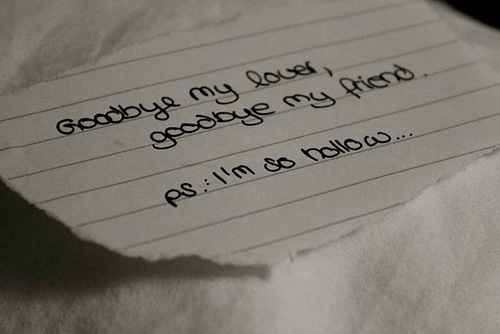 Goodbye my lover,
goodbye my friend.
ps.: I'm so hollow...